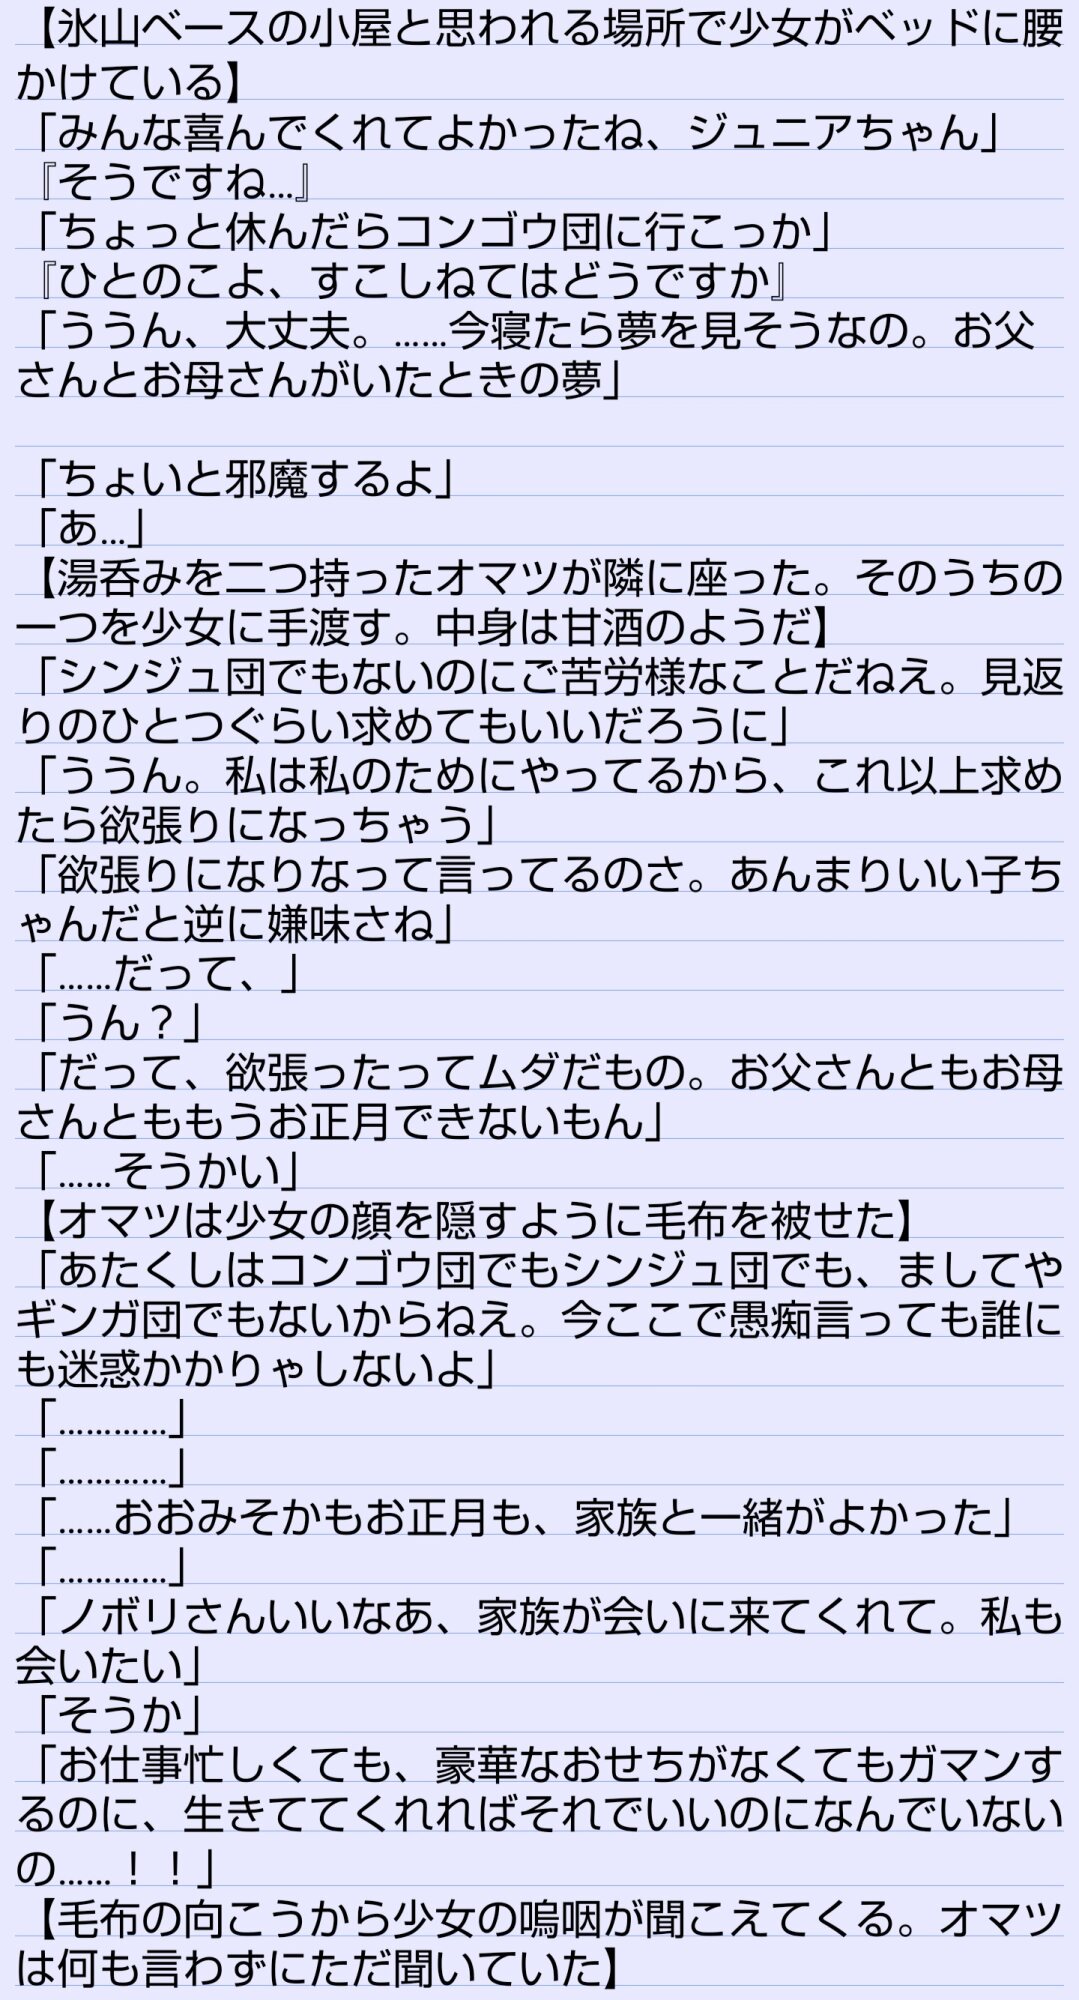 【氷山ベースの小屋と思われる場所で少女がベッドに腰
かけている】
「みんな喜んでくれてよかったね、ジュニアちゃん」
『そうですね…』
「ちょっと休んだらコンゴウ団に行こっか」
『ひとのこよ、すこしねてはどうですか』
「ううん、大丈夫。……今寝たら夢を見そうなの。お父
さんとお母さんがいたときの夢」
「ちょいと邪魔するよ」
「あ…」
【湯呑みを二つ持ったオマツが隣に座った。そのうちの
一つを少女に手渡す。中身は甘酒のようだ】
「シンジュ団でもないのにご苦労様なことだねえ。見返
りのひとつぐらい求めてもいいだろうに」
「ううん。私は私のためにやってるから、これ以上求め
たら欲張りになっちゃう」
「欲張りになりなって言ってるのさ。あんまりいい子ち
ゃんだと逆に嫌味さね」
「……だって、」
「うん？」
「だって、欲張ったってムダだもの。お父さんともお母
さんとももうお正月できないもん」
「……そうかい」
【オマツは少女の顔を隠すように毛布を被せた】
「あたくしはコンゴウ団でもシンジュ団でも、ましてや
ギンガ団でもないからねえ。今ここで愚痴言っても誰に
も迷惑かかりゃしないよ」
「…………」
「…………」
「……おおみそかもお正月も、家族と一緒がよかった」
「…………」
「ノボリさんいいなあ、家族が会いに来てくれて。私も
会いたい」
「そうか」
「お仕事忙しくても、豪華なおせちがなくてもガマンす
るのに、生きててくれればそれでいいのになんでいない
の……！！」
【毛布の向こうから少女の嗚咽が聞こえてくる。オマツ
は何も言わずにただ聞いていた】